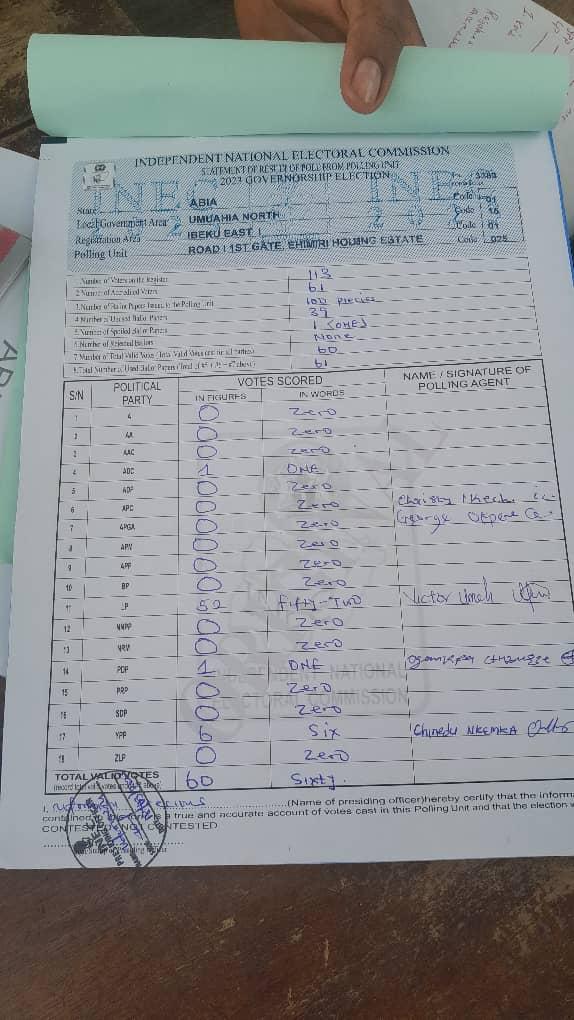 INDEPENDENT NATIONAL ELECTORAL COMMISSION
STATEMENT OF RESULT OF POLL FROM POLLING UNIT
2023 GOVERNORSHIP ELECTION
State ABIA Code 01
Local Government Area UMUAHIA NORTH Code
Registration Area IBEKU EAST I Code 01
Polling Unit ROAD 1 1ST GATE, EHIMIRI HOUING ESTATE Code 025
1. Number of Voters on the Register 113
2. Number of Accredited Voters 61
3. Number of Ballot Papers Issued to the Polling Unit 100 pieces
4. Number of Unused Ballot Papers 39
5. Number of Spoiled Ballot Papers 1 [ONE]
6. Number of Rejected Ballots None
7. Number of Total Valid Votes (Total Valid Votes cast for all parties) 60
8. Total Number of Used Ballot Papers (Total of #5 + #6 + #7 above) 61
S/N POLITICAL PARTY VOTES SCORED NAME / SIGNATURE OF POLLING AGENT
IN FIGURES IN WORDS
1 A 0 Zero
2 AA 0 Zero
3 AAC 0 Zero
4 ADC 1 ONE
5 ADP 0 Zero
6 APC 0 Zero
7 APGA 0 Zero George
8 APM 0 Zero
9 APP 0 Zero
10 BP 0 Zero
11 LP 52 Fifty-Two Victor Umeh
12 NNPP 0 Zero
13 NRM 0 Zero
14 PDP 1 ONE
15 PRP 0 Zero
16 SDP 0 Zero
17 YPP 6 Six Chinedu NKEMKA
18 ZLP 0 Zero
TOTAL VALID VOTES 60 Sixty.
I, (Name of presiding officer)hereby certify that the
a true and accurate account of votes cast in this Polling Unit and that the election
CONTESTED/NOT CONTESTED